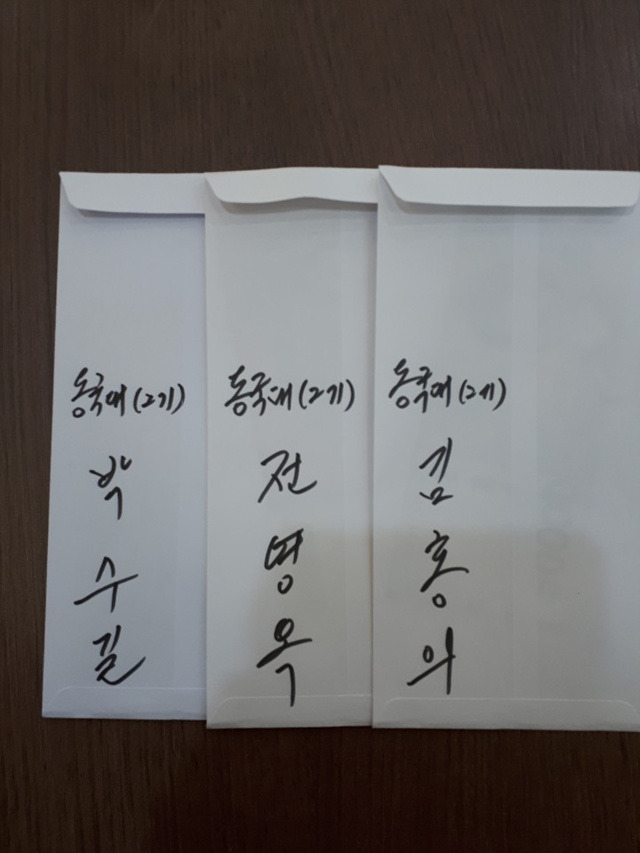 동국대(2기)
박
수
길
동국대(2기)
전
명
옥
동국대(2기)
김
홍
의